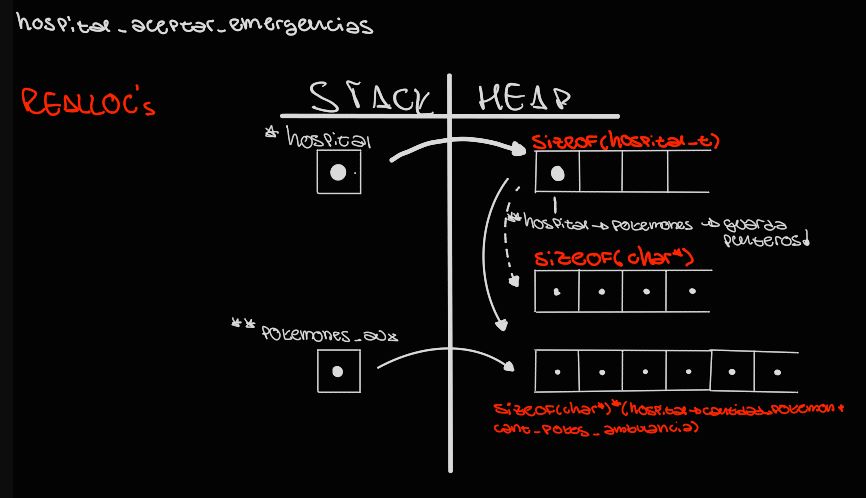 hospital_aceptar_emergencias
REALLOC's
STACK
HEAP
* hospital
sizeof(hospital_t)
**hospital→pokemones → guarda
punteros!
sizeof(char*)
** pokemones_aux
sizeof(char*)*(hospital→cantidad_pokemon+
cant_pokes_ambulancia)